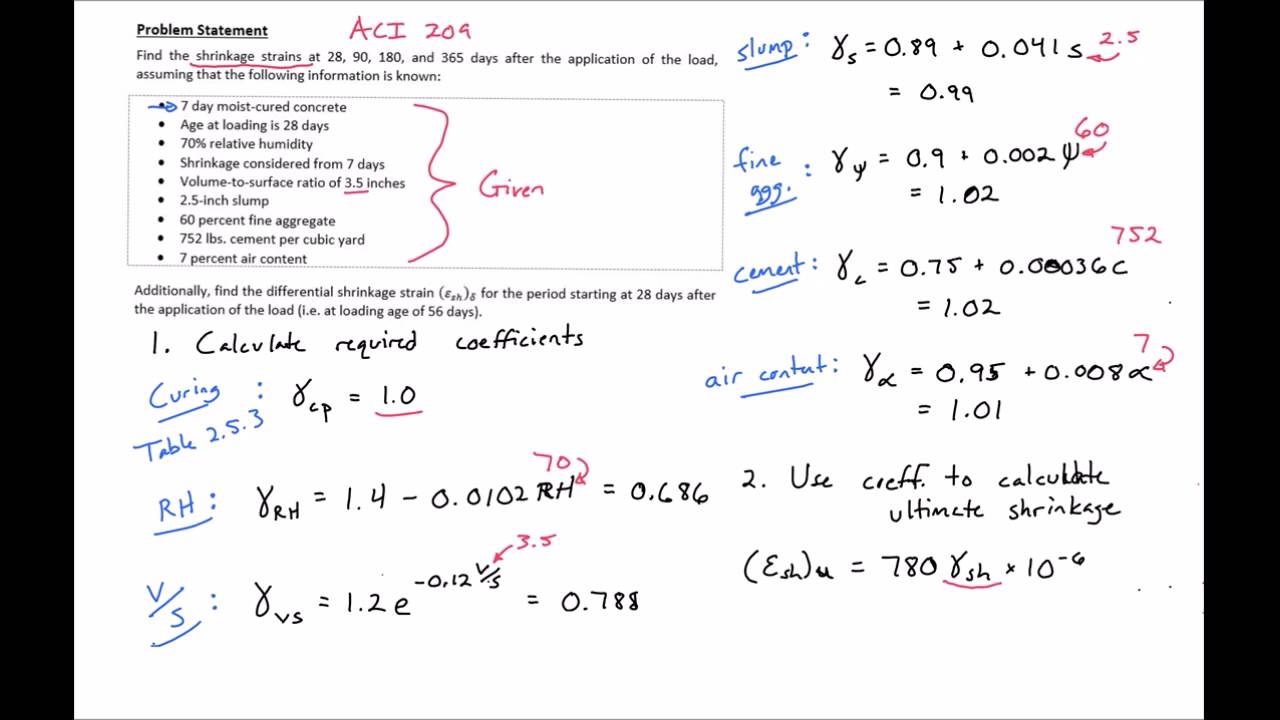 Problem Statement
ACI 209
Find the shrinkage strains at 28, 90, 180, and 365 days after the application of the load,
assuming that the following information is known:
• 7 day moist-cured concrete
• Age at loading is 28 days
• 70% relative humidity
• Shrinkage considered from 7 days
• Volume-to-surface ratio of 3.5 inches
• 2.5-inch slump
• 60 percent fine aggregate
• 752 lbs. cement per cubic yard
• 7 percent air content
Given
Additionally, find the differential shrinkage strain (εsh)δ for the period starting at 28 days after
the application of the load (i.e. at loading age of 56 days).
1. Calculate required coefficients
Curing : γcp = 1.0
Table 2.5.3
70
RH : γRH = 1.4 - 0.0102 RH = 0.686
3.5
V/S : γvs = 1.2 e^-0.12 V/S = 0.788
2.5
slump : γs = 0.89 + 0.041 s
= 0.99
60
fine agg. : γψ = 0.9 + 0.002 ψ
= 1.02
752
cement : γc = 0.75 + 0.00036c
= 1.02
7
air content : γα = 0.95 + 0.008α
= 1.01
2. Use coeff. to calculate
ultimate shrinkage
(εsh)u = 780 γsh × 10^-6